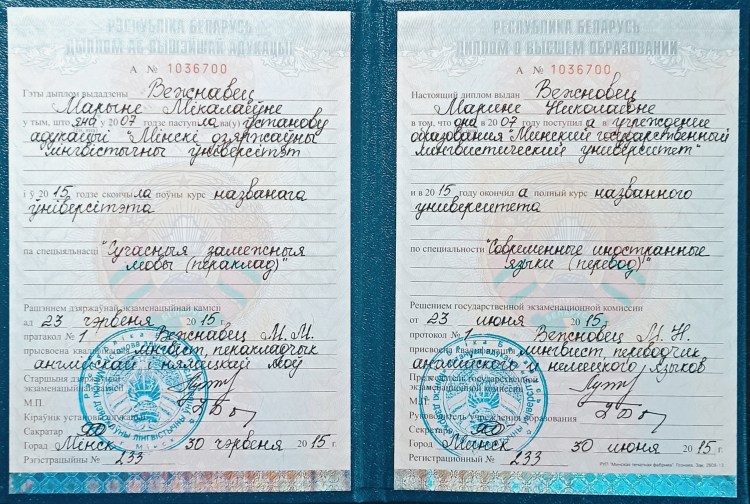 РЭСПУБЛІКА БЕЛАРУСЬ
ДЫПЛОМ АБ ВЫШЭЙШАЙ АДУКАЦЫІ
А № 1036700
Гэты дыплом выдадзены Вежнавец
Марыне Мікалаеўне
у тым, што яна у 2007 годзе паступіла ва(у) установу
адукацыі "Мінскі дзяржаўны
лінгвістычны ўніверсітэт
і ў 2015 годзе скончыла поўны курс названага
ўніверсітэта
па спецыяльнасці "Сучасныя замежныя
мовы (пераклад)"
Рашэннем дзяржаўнай экзаменацыйнай камісіі
ад 23 чэрвеня 2015 г.
пратакол № 1 Вежнавец М.М.
прысвоена кваліфікацыя лінгвіст, перакладчык
англійскай і нямецкай моў
Старшыня дзяржаўнай
экзаменацыйнай камісіі
М.П.
Кіраўнік установы адукацыі
Сакратар
Горад Мінск 30 чэрвеня 2015 г.
Рэгістрацыйны № 233
РЕСПУБЛИКА БЕЛАРУСЬ
ДИПЛОМ О ВЫСШЕМ ОБРАЗОВАНИИ
А № 1036700
Настоящий диплом выдан Вежновец
Марине Николаевне
в том, что она в 2007 году поступил а в учреждение
образования "Минский государственный
лингвистический университет"
и в 2015 году окончил а полный курс названного
университета
по специальности "Современные иностранные
языки (перевод)"
Решением государственной экзаменационной комиссии
от 23 июня 2015 г.
протокол № 1 Вежновец М.Н.
присвоена квалификация лингвист, переводчик
английского и немецкого языков
Председатель государственной
экзаменационной комиссии
М.П.
Руководитель учреждения образования
Секретарь
Город Минск 30 июня 2015 г.
Регистрационный № 233